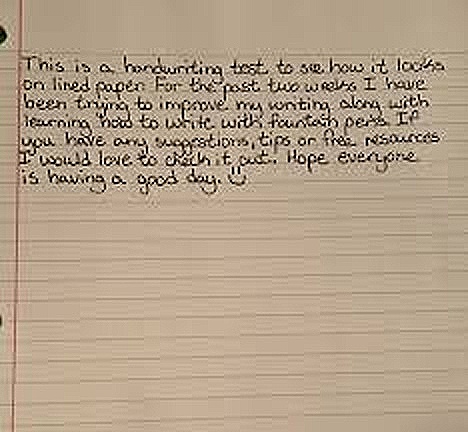 This is a handwriting test to see how it looks
on lined paper. For the past two weeks I have
been trying to improve my writing along with
learning how to write with fountain pens. If
you have any suggestions, tips or free resources
I would love to check it out. Hope everyone
is having a good day. ☺